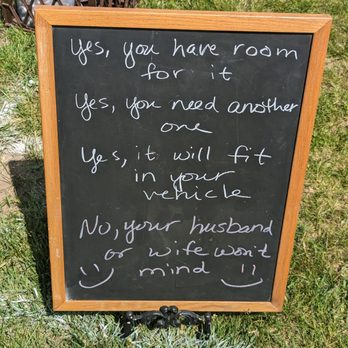 Yes, you have room
for it
Yes, you need another
one
Yes, it will fit
in your
vehicle
No, your husband
or wife won't
mind